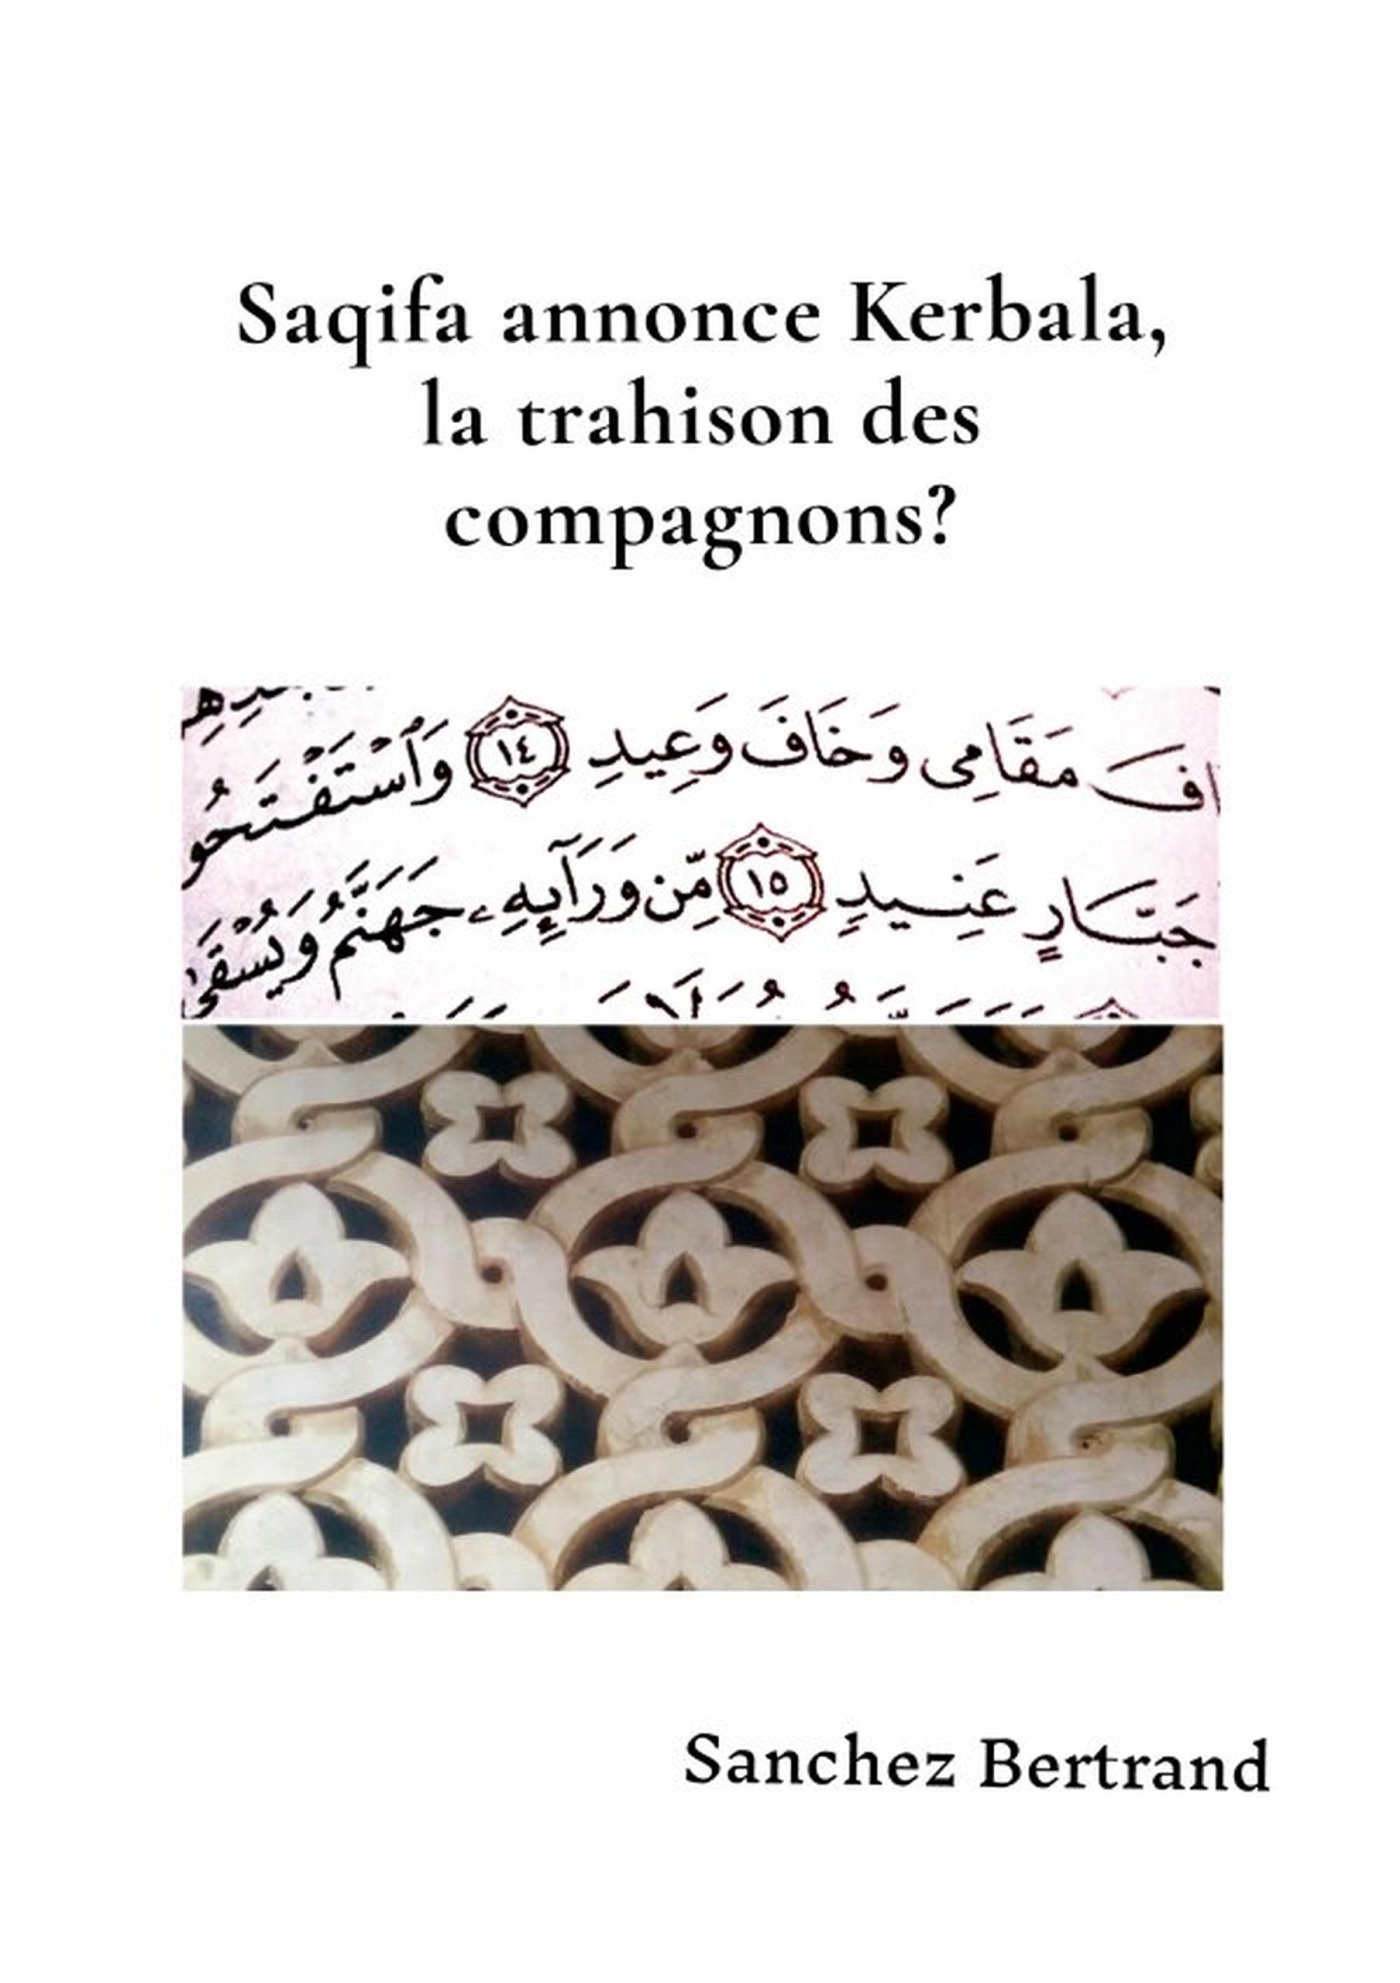 Saqifa annonce Kerbala,
la trahison des
compagnons?
افَ مَقَامِى وَخَافَ وَعِيدِ ١٤ وَٱسْتَفْتَحُو
جَبَّارٍ عَنِيدٍ ١٥ مِّن وَرَآئِهِۦ جَهَنَّمُ وَيُسْقَىٰ
Sanchez Bertrand